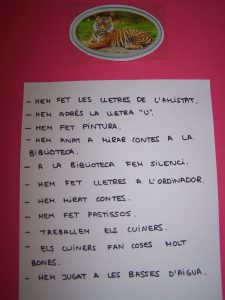 - HEM FET LES LLETRES DE L'AMISTAT.
- HEM APRÈS LA LLETRA "U".
- HEM FET PINTURA.
- HEM ANAT A MIRAR CONTES A LA
BIBLIOTECA.
- A LA BIBLIOTECA FEM SILENCI.
- HEM FET LLETRES A L'ORDINADOR.
- HEM MIRAT CONTES.
- HEM FET PASTISSOS.
- TREBALLEM ELS CUINERS.
- ELS CUINERS FAN COSES MOLT
BONES.
- HEM JUGAT A LES BASSES D'AIGUA.